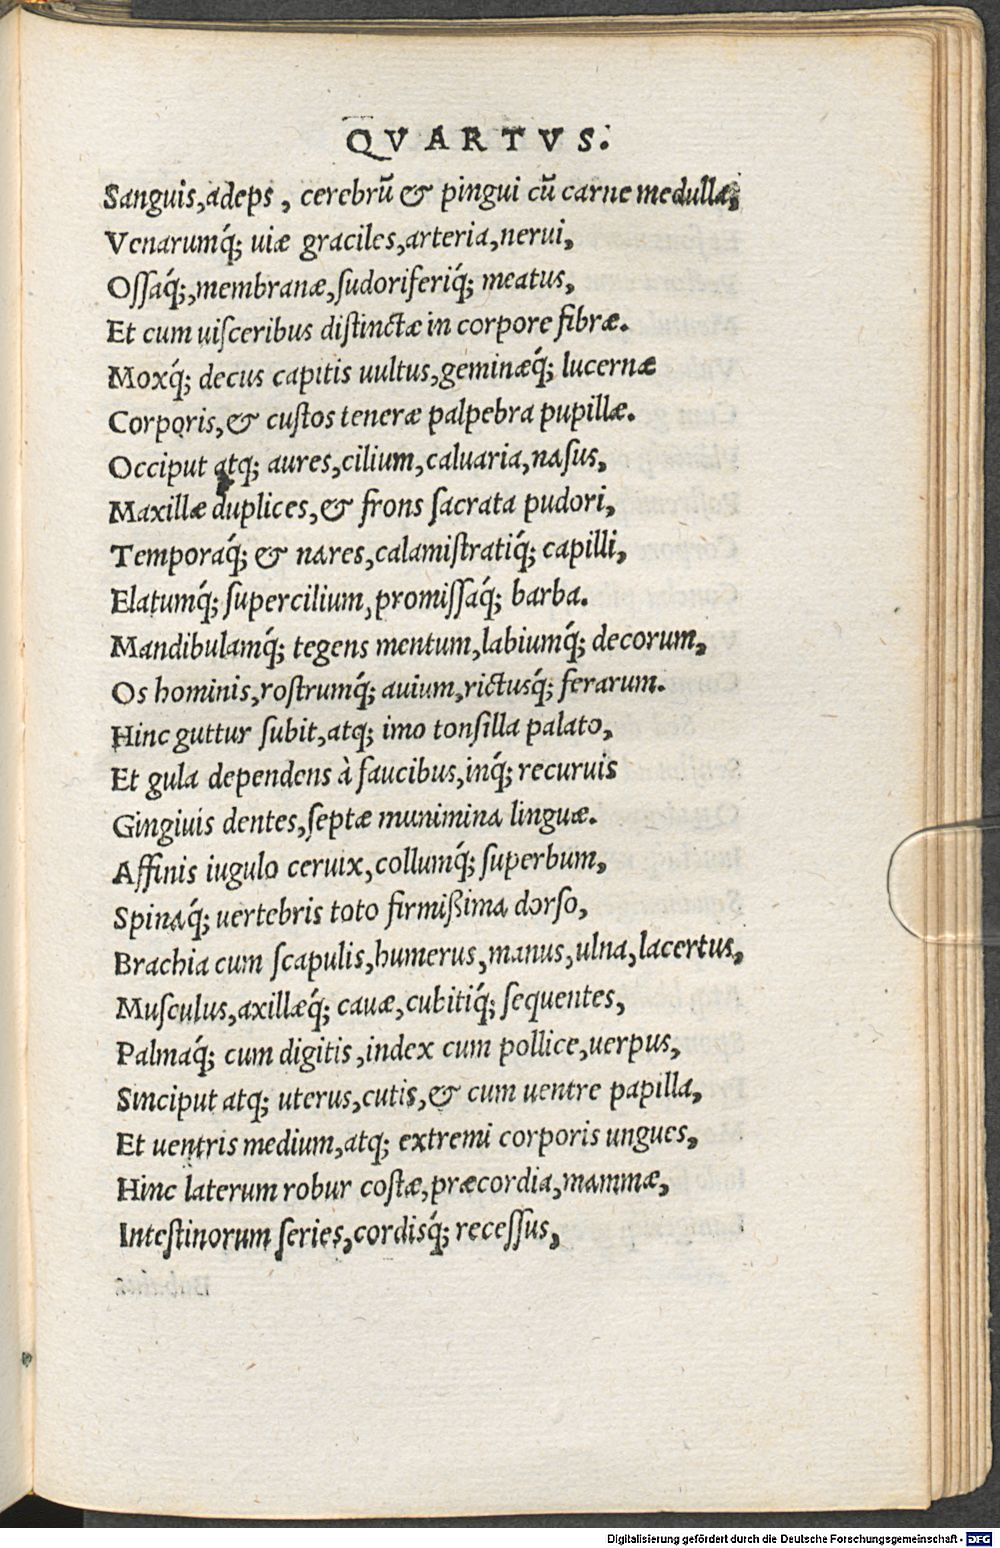 QVARTVS.
Sanguis,adeps, cerebrũ & pingui cũ carne medulla,
Venarumq́; uiæ graciles,arteria,nerui,
Ossaq́;,membranæ,sudoriferiq́; meatus,
Et cum uisceribus distinctæ in corpore fibræ.
Moxq́; decus capitis uultus,geminæq́; lucernæ
Corporis,& custos teneræ palpebra pupillæ.
Occiput atq; aures,cilium,caluaria,nasus,
Maxillæ duplices,& frons sacrata pudori,
Temporaq́; & nares,calamistratiq́; capilli,
Elatumq́; supercilium,promissaq́; barba.
Mandibulamq́; tegens mentum,labiumq́; decorum,
Os hominis,rostrumq́; auium,rictusq́; ferarum.
Hinc guttur subit,atq; imo tonsilla palato,
Et gula dependens à faucibus,inq́; recuruis
Gingiuis dentes,septæ munimina linguæ.
Affinis iugulo ceruix,collumq́; superbum,
Spinaq́; uertebris toto firmißima dorso,
Brachia cum scapulis,humerus,manus,ulna,lacertus,
Musculus,axillæq́; cauæ,cubitiq́; sequentes,
Palmaq́; cum digitis,index cum pollice,uerpus,
Sinciput atq; uterus,cutis,& cum uentre papilla,
Et uentris medium,atq; extremi corporis ungues,
Hinc laterum robur costæ,præcordia,mammæ,
Intestinorum series,cordisq́; recessus,
Digitalisierung gefördert durch die Deutsche Forschungsgemeinschaft - DFG